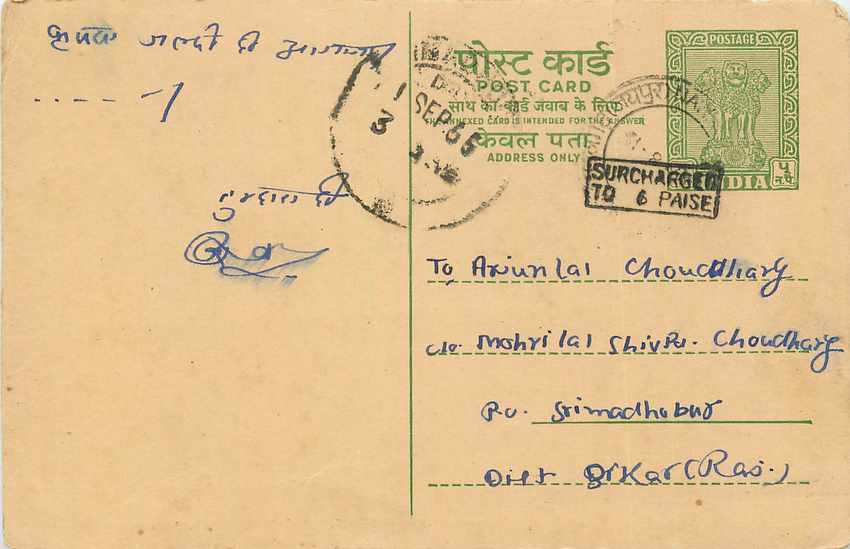 जल्दी ही
पोस्ट कार्ड
POST CARD
साथ का कार्ड जवाब के लिए
THE ANNEXED CARD IS INTENDED FOR THE ANSWER
केवल पता
ADDRESS ONLY
POSTAGE
INDIA
न.प.
1 SEP 65
SURCHARGED
TO 6 PAISE
To Arjunlal Choudhary
c/o Mohrilal Choudhary
Po. Srimadhobur
Dist Sikar (Raj.)